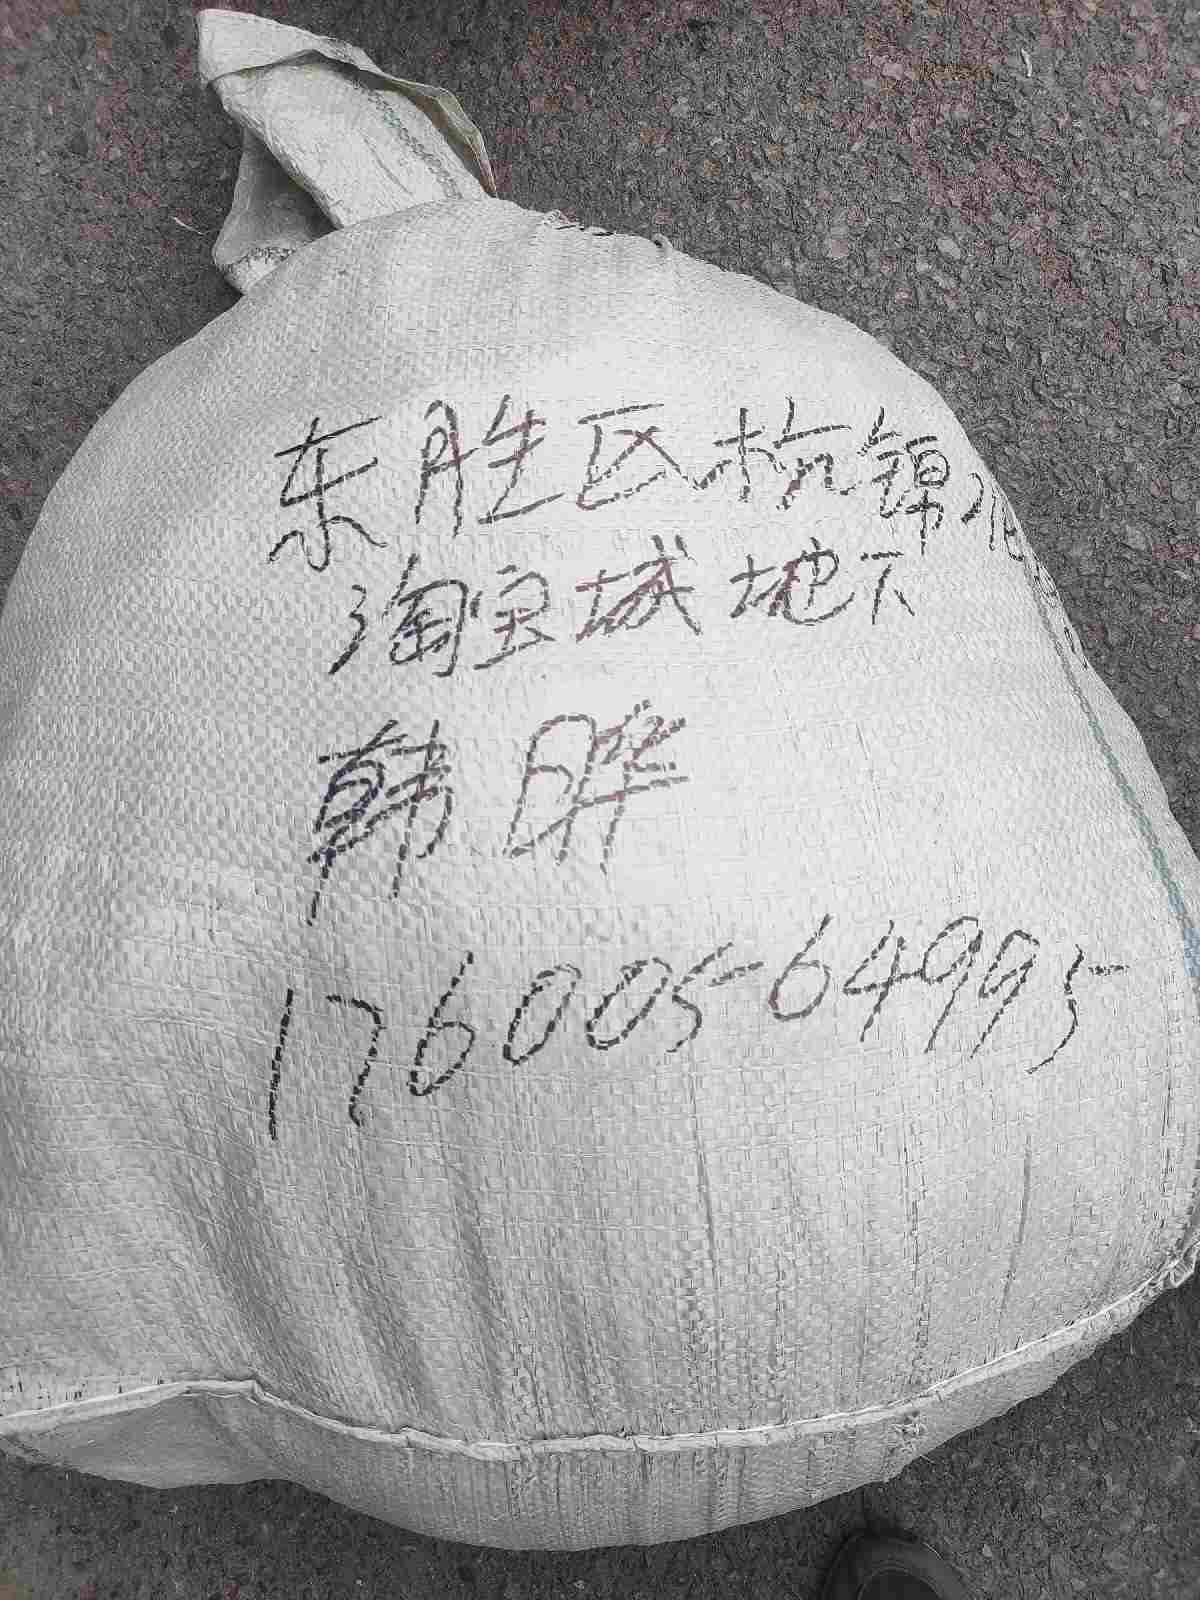 东胜区杭锦
淘宝城地下
韩晔
17600564995